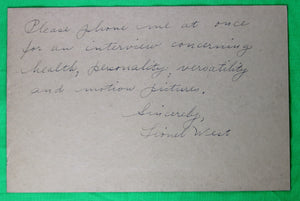 Please phone me at once
for an interview concerning
health, personality, versatility
and motion pictures.
Sincerely,
Lionel West